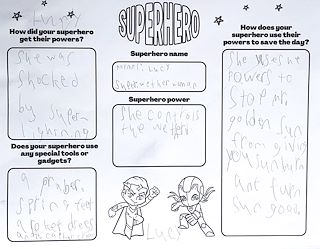 Lucy
SUPERHERO
How did your superhero
get their powers?
She was
shocked
by super
lightning
Does your superhero use
any special tools or
gadgets?
a
spring feet
to keep dress
Superhero name
Lucy
Superweatherwoman
Superhero power
She controls
the wethere
How does your
superhero use their
powers to save the day?
She uses he
powers to
stop mr
golden sun
from giving
you sunburn
Ant turn
sun good.
Lucy